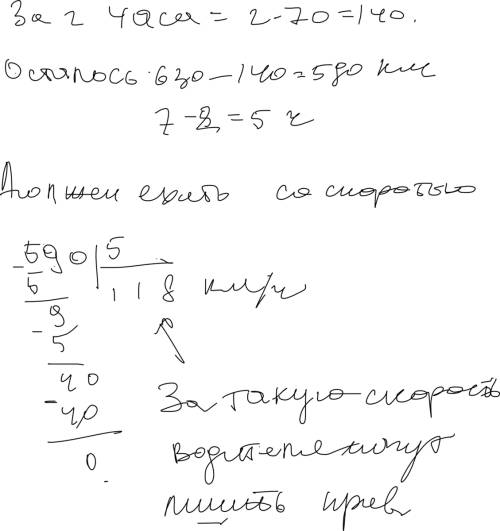 За 2 часа = 2-70=140.
Осталось 630-140=590 км
7-2=5 ч
Должен ехать со скоростью
-590|5
5 118 км/ч
9
-5
40
-40
0.
За такую скорость
водителя могут
лишить прав